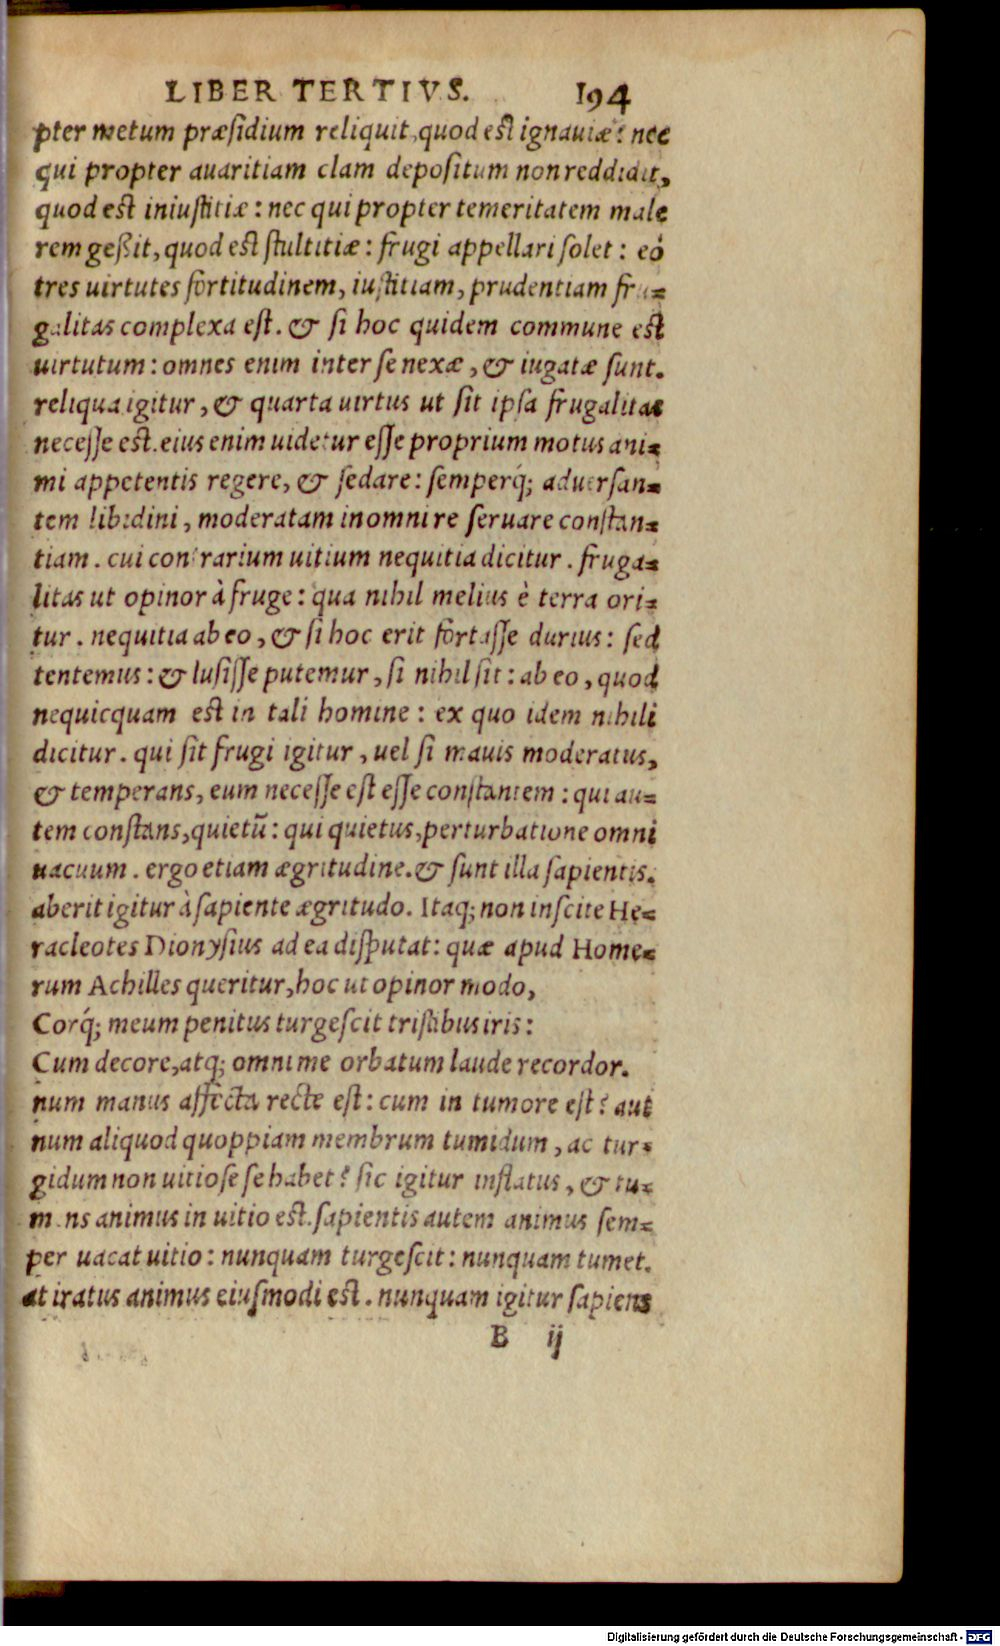 LIBER TERTIVS. 194
pter metum præsidium reliquit, quod est ignauiæ: nec
qui propter auaritiam clam depositum non reddidit,
quod est iniustitiæ: nec qui propter temeritatem male
rem geßit, quod est stultitiæ: frugi appellari solet: eó
tres uirtutes fortitudinem, iustitiam, prudentiam fru=
galitas complexa est. & si hoc quidem commune est
uirtutum: omnes enim inter se nexæ, & iugatæ sunt.
reliqua igitur, & quarta uirtus ut sit ipsa frugalitas
necesse est. eius enim uidetur esse proprium motus ani=
mi appetentis regere, & sedare: semperq́; aduersan=
tem libidini, moderatam in omni re seruare constan=
tiam. cui contrarium uitium nequitia dicitur. fruga=
litas ut opinor à fruge: qua nihil melius è terra ori=
tur. nequitia ab eo, & si hoc erit fortasse durius: sed
tentemus: & lusisse putemur, si nihil sit: ab eo, quod
nequicquam est in tali homine: ex quo idem nihili
dicitur. qui sit frugi igitur, uel si mauis moderatus,
& temperans, eum necesse est esse constantem: qui au=
tem constans, quietũ: qui quietus, perturbatione omni
uacuum. ergo etiam ægritudine. & sunt illa sapientis.
aberit igitur à sapiente ægritudo. Itaq; non inscite He=
racleotes Dionysius ad ea disputat: quæ apud Home=
rum Achilles queritur, hoc ut opinor modo,
Corq́; meum penitus turgescit tristibus iris:
Cum decore, atq; omni me orbatum laude recordor.
num manus affecta recte est: cum in tumore est? aut
num aliquod quoppiam membrum tumidum, ac tur=
gidum non uitiose se habet? sic igitur inflatus, & tu=
mens animus in uitio est. sapientis autem animus sem=
per uacat uitio: nunquam turgescit: nunquam tumet.
at iratus animus eiusmodi est. nunquam igitur sapiens
B ij
Digitalisierung gefördert durch die Deutsche Forschungsgemeinschaft - DFG